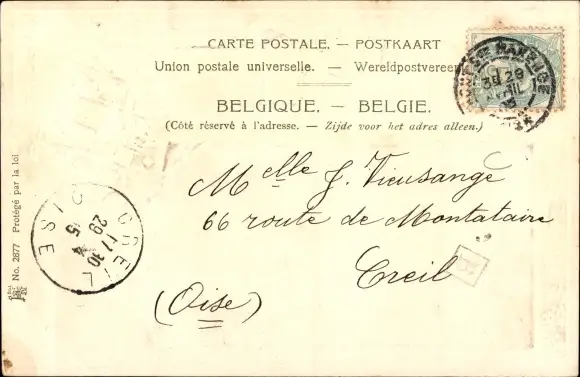 CARTE POSTALE. — POSTKAART
Union postale universelle. — Wereldpostvereen
BELGIQUE. — BELGIE.
(Côté réservé à l'adresse. — Zijde voor het adres alleen.)
Melle J. Vieusangé
66 route de Montataire
Creil
(Oise)
CREIL
17 30
29 4
5
OISE
No. 2877 Protégé par la loi